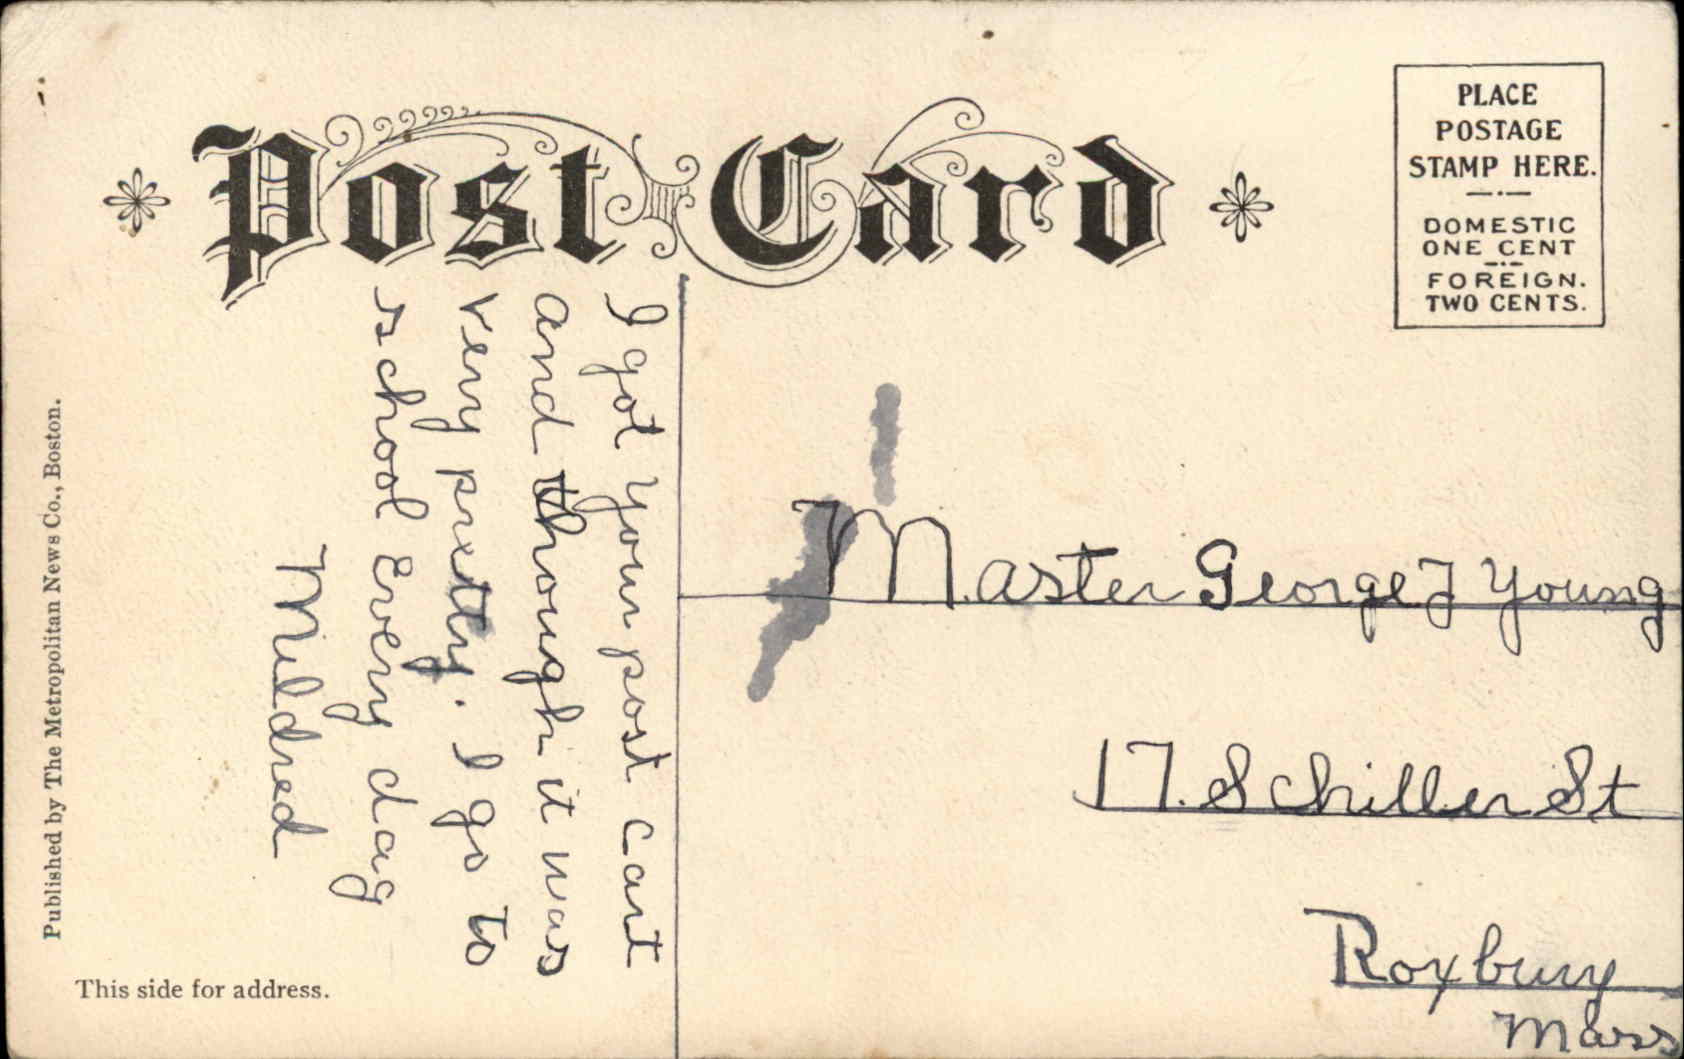 Post Card
PLACE
POSTAGE
STAMP HERE.
DOMESTIC
ONE CENT
FOREIGN.
TWO CENTS.
I got your post cart
and though it was
very pretty. I go to
school Every day
Mildred
Master George J Young
17. Schiller St
Roxbury
Mass
Published by The Metropolitan News Co., Boston.
This side for address.